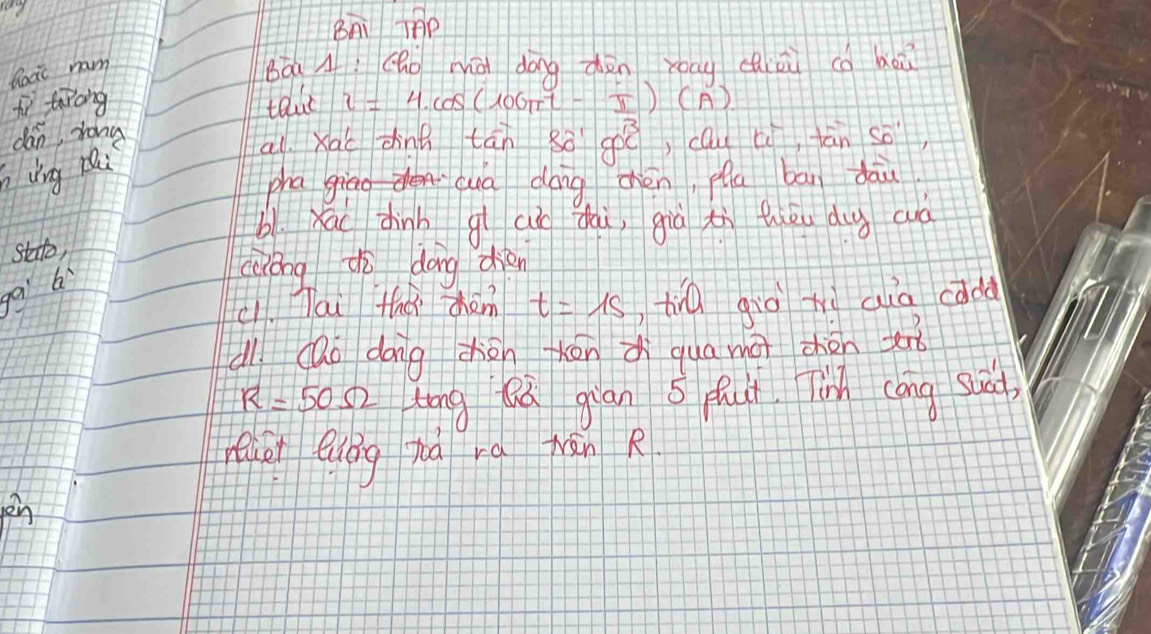 BÀI TẬP
Bài 1: Cho một dòng điện xoay chiều có biểu
thức i = 4.cos(100πt - π/3) (A)
a/. Xác định tần số góc, chu kì, tần số,
pha giao điện của dòng điện, pha ban đầu.
b/. Xác định gt cực đại, giá trị hiệu dụng của
cường độ dòng điện
c/. Tại thời điểm t = 1s, tính giá trị của cđdđ
d/. Cho dòng điện trên đi qua một điện trở
R = 50Ω trong thời gian 5 phút. Tính công suất,
nhiệt lượng toả ra trên R.
hoặc nam
từ trường
dẫn, trong
ứng
stato,